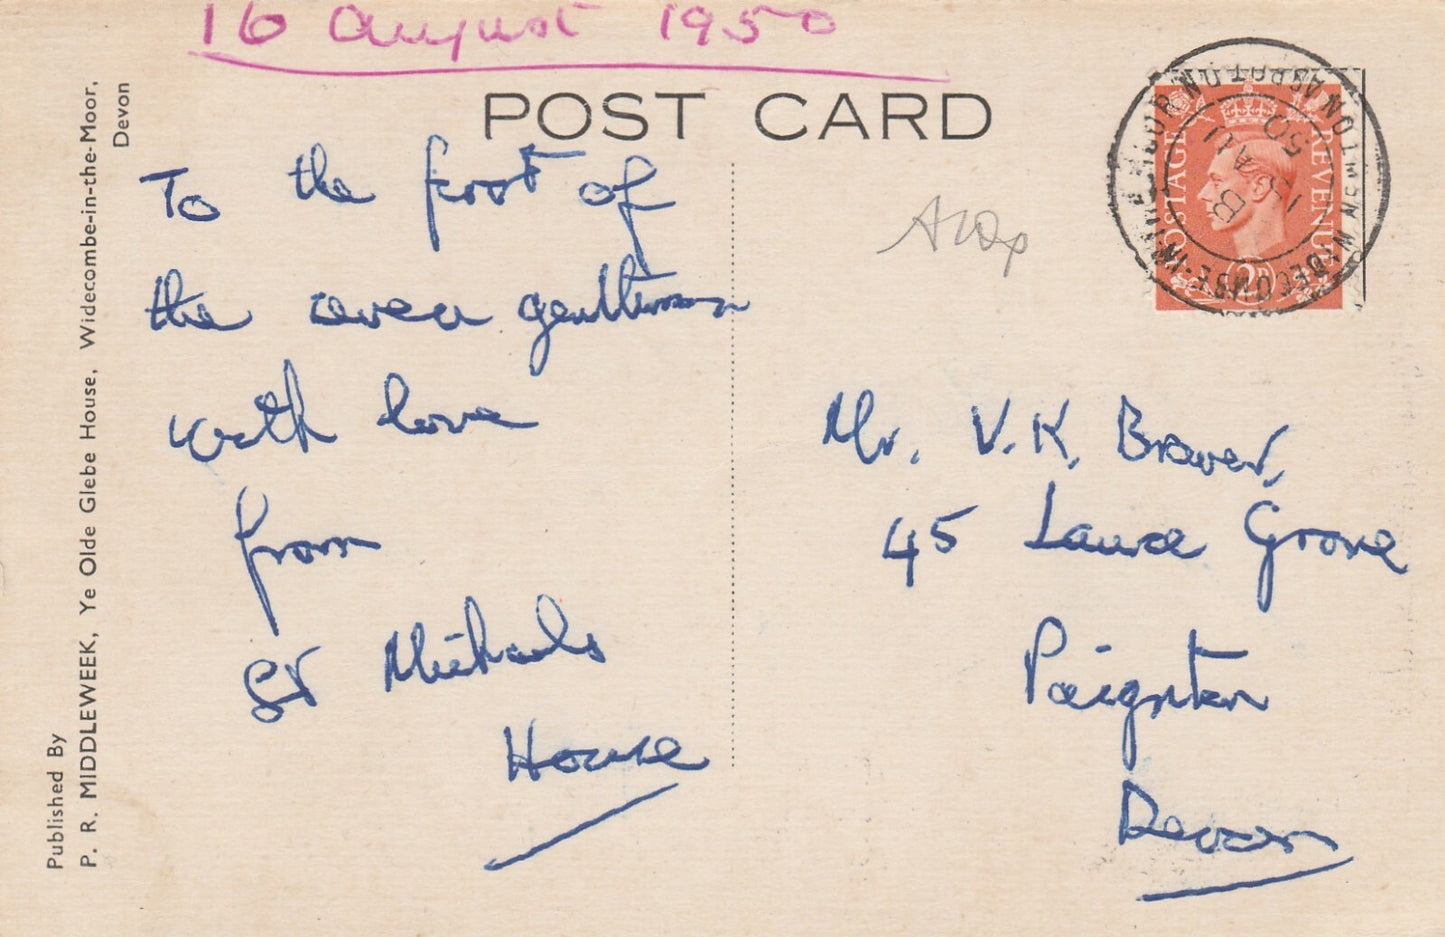 16 August 1950
POST CARD
To the first of
the seven gentlemen
with love
from
St Michaels
House
Mr. V. K. Brewer,
45 Laura Grove
Paignton
Devon
POSTAGE REVENUE
WIDECOMBE-IN-THE-MOOR NEWTON ABBOT
B
15 AU
50
Published By
P. R. MIDDLEWEEK, Ye Olde Glebe House, Widecombe-in-the-Moor,
Devon